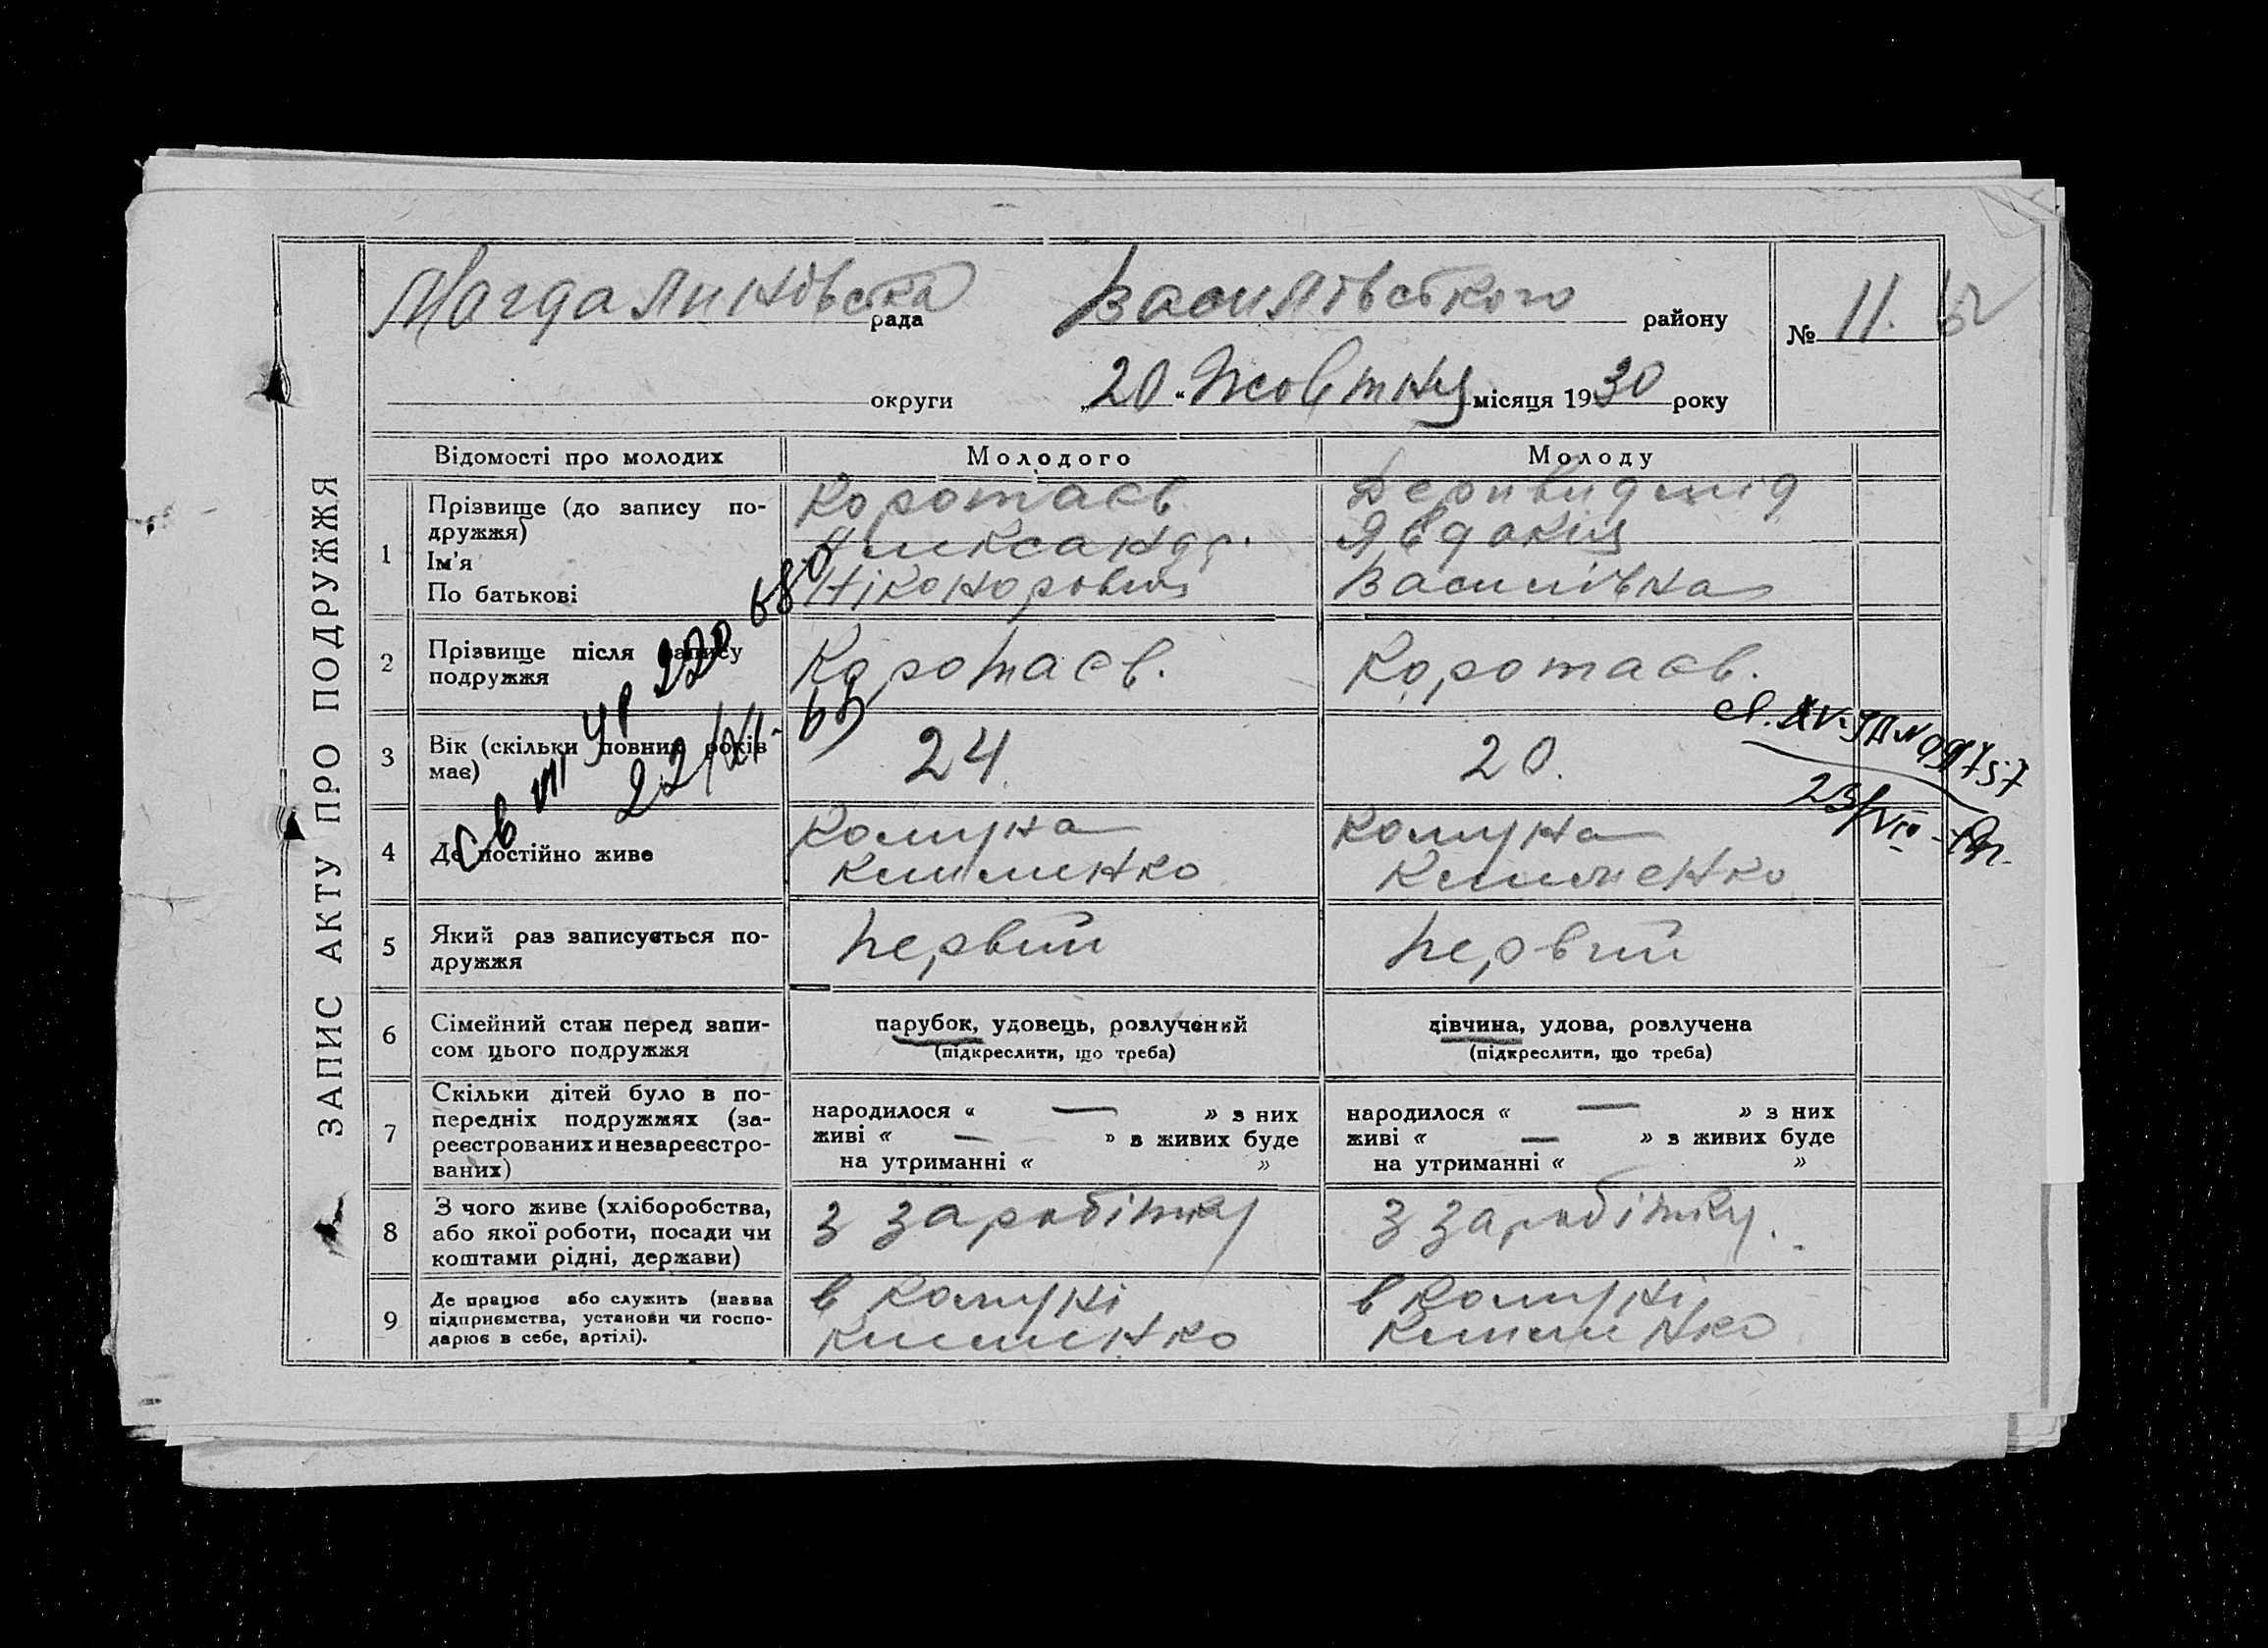 ЗАПИС АКТУ ПРО ПОДРУЖЖЯ
Магдалинівська рада Василівського району № 11.
округи „20“ Жовтня місяця 1930 року
Відомості про молодих Молодого Молоду
1 Прізвище (до запису по-дружжя) Коротаєв
Ім'я Олександр. Явдокия
По батькові Ніконорович Василівна
2 Прізвище після запису подружжя Коротаєв. Коротаєв.
3 Вік (скільки повних років має) 24. 20.
4 Де постійно живе Комуна Комуна
Клименко Клименко
5 Який раз записується по-дружжя первий первий
6 Сімейний стан перед запи-сом цього подружжя парубок, удовець, розлучений дівчина, удова, розлучена
(підкреслити, що треба) (підкреслити, що треба)
7 Скільки дітей було в по-передніх подружжях (за-реєстрованих и незареєстро-ваних)
народилося « — » з них народилося « — » з них
живі « — » з живих буде живі « — » з живих буде
на утриманні « » на утриманні « »
8 З чого живе (хліборобства, або якої роботи, посади чи коштами рідні, держави) З заробітку З заробітку.
9 Де працює або служить (назва підприємства, установи чи госпо-дарює в себе, артілі). в комуні в комуні
Клименко Клименко
22/XI-